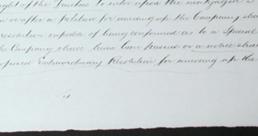 right of the Trustees to enter upon the mortgaged
or after a Petition for winding up the Company shall
resolution capable of being confirmed as a Special
the Company shall have been passed or a notice shall
proposed Extraordinary Resolution for winding up the